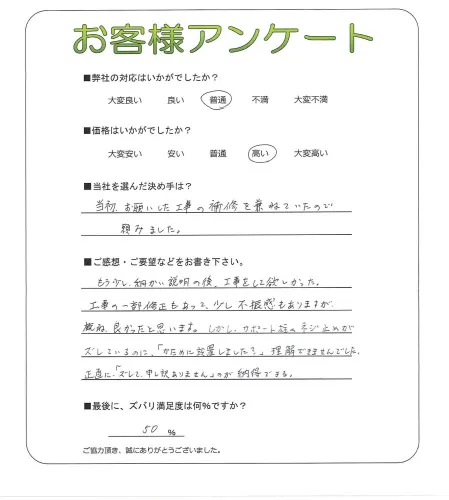 お客様アンケート
■弊社の対応はいかがでしたか？
大変良い 良い 普通 不満 大変不満
■価格はいかがでしたか？
大変安い 安い 普通 高い 大変高い
■当社を選んだ決め手は？
当初、お願いした工事の補修を兼ねていたので
頼みました。
■ご感想・ご要望などをお書き下さい。
もう少し、細かい説明の後、工事をして欲しかった。
工事の一部修正もあって、少し不振感もありますが、
概ね、良かったと思います。しかし、サポート のネジ止めが
ズレているのに、「 ために設置しました？」理解できませんでした。
正直に、「ズレて、申し訳ありません」のが納得できる。
■最後に、ズバリ満足度は何%ですか？
50 %
ご協力頂き、誠にありがとうございました。